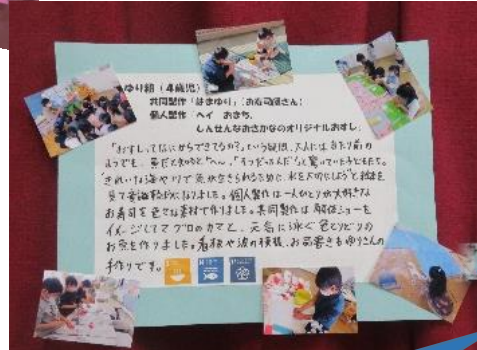 ゆり組（4歳児）
共同製作「はまゆり」（お寿司屋さん）
個人製作「ヘイ おまち。
しんせんなおさかなのオリジナルおすし」
「おすしってなにからできてるの？」という疑問。大人には当たり前の
ようでも、魚だと知ると「へ〜」「そうだったんだ」と驚いていた子どもたち。
きれいな海や川で魚が生きられるために、水を大切にしようと絵本を
見て意識するようになりました。個人製作は一人ひとりが大好きな
お寿司を色々な素材で作りました。共同製作は解体ショーを
イメージしてマグロのカマと、元気に泳ぐ色とりどりの
お魚を作りました。看板や波の模様、お品書きもゆりさんの
手作りです。